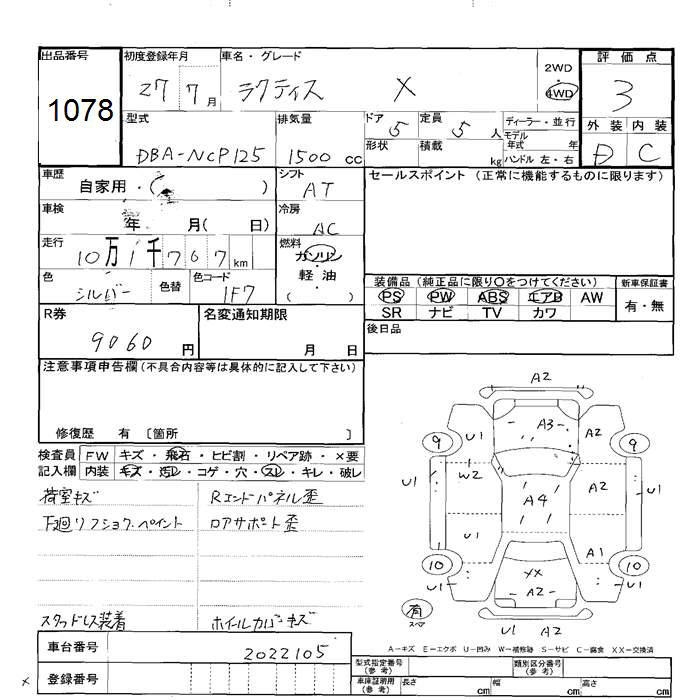 出品番号
1078
初度登録年月
27 7 月
車名・グレード
ラクティス X
2WD
・
4WD
評価点
3
型式
DBA-NCP125
排気量
1500 cc
ドア 5
形状
定員 5 人
積載 kg
ディーラー・並行
モデル年式 年
ハンドル 左・右
外装 内装
D C
車歴
自家用・( )
シフト
AT
セールスポイント (正常に機能するものに限ります)
車検
年 月( 日)
冷房
AC
走行
10万1千767km
燃料
ガソリン
・
軽油
( )
色
シルバー
色替
色コード
1F7
装備品 (純正品に限り〇をつけてください)
PS PW ABS エアB AW
SR ナビ TV カワ
新車保証書
有・無
R券
9060 円
名変通知期限
月 日
後日品
注意事項申告欄 (不具合内容等は具体的に記入して下さい)
修復歴 有 〔箇所 〕
検査員記入欄
FW キズ・飛石・ヒビ割・リペア跡・×要
内装 キズ・汚レ・コゲ・穴・スレ・キレ・破レ
荷室キズ
Rエンドパネル歪
下廻リフショク.ペイント
ロアサポート歪
スタッドレス装着
ホイールカバーキズ
A2
U1 A3 A2
9 9
U1 W2 A4 A2 U1
U1 A1
10 10
U1 XX U1
A2
有
スペア
U1 A2
A-キズ E-エクボ U-凹み W-補修跡 S-サビ C-腐食 XX-交換済
車台番号
2022105
登録番号
型式指定番号(参考)
類別区分番号(参考)
車庫証明用(参考) 長さ cm 幅 cm 高さ cm